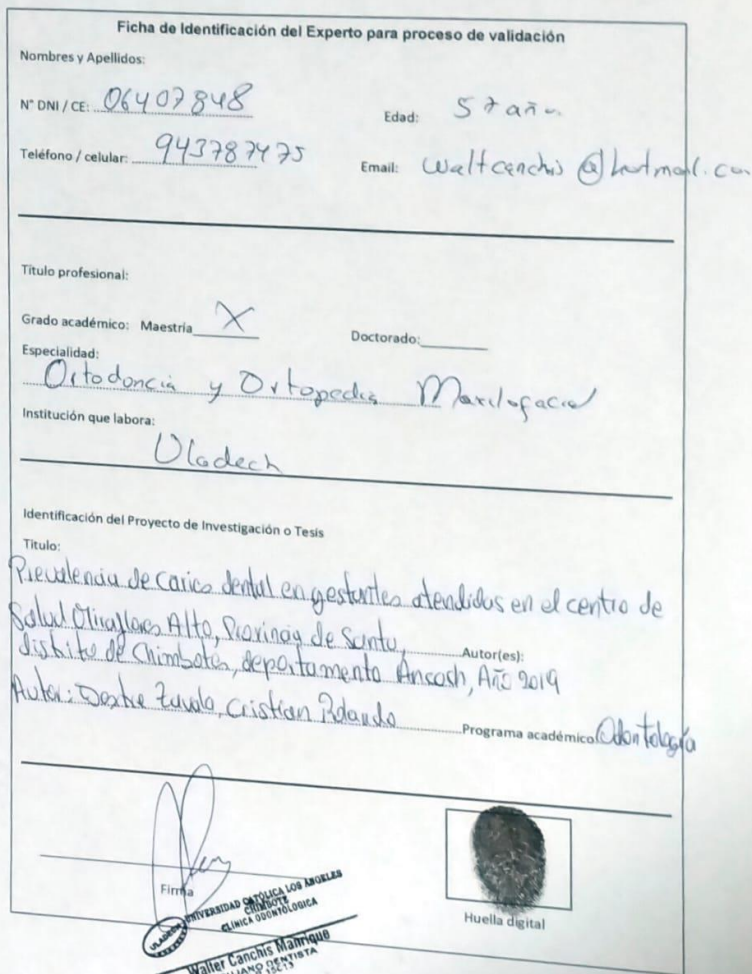 Ficha de Identificación del Experto para proceso de validación
Nombres y Apellidos:
N° DNI / CE: 06407848 Edad: 57 años
Teléfono / celular: 943787475 Email: Waltcanchis@hotmail.com
Título profesional:
Grado académico: Maestría X Doctorado:
Especialidad:
Ortodoncia y Ortopedia Maxilofacial
Institución que labora:
Uladech
Identificación del Proyecto de Investigación o Tesis
Título:
Prevalencia de caries dental en gestantes atendidas en el centro de
Salud Miraflores Alto, Provincia de Santa,
Autor(es):
distrito de Chimbote, departamento Ancash, Año 2019
Autor: Dextre Zavala, Cristian Rolando Programa académico Odontología
Firma
Huella digital
ULADECH UNIVERSIDAD CATÓLICA LOS ÁNGELES
CHIMBOTE
CLINICA ODONTOLOGICA
Walter Canchis Manrique
DENTISTA